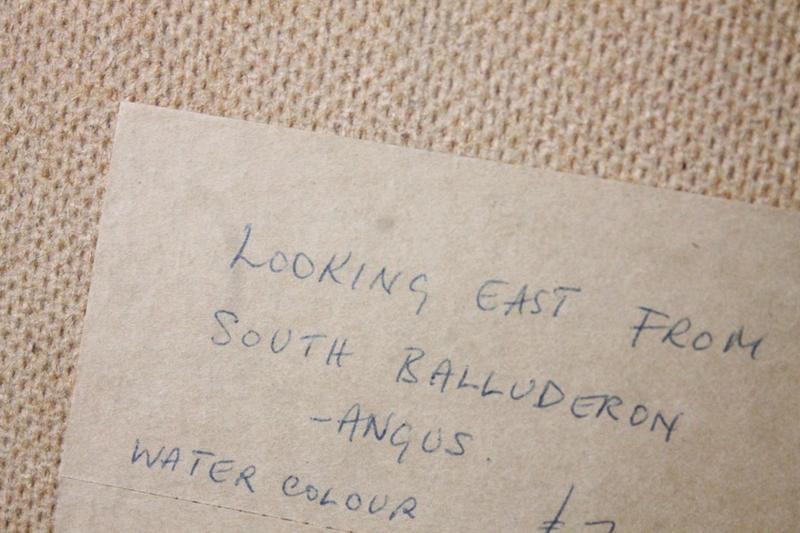 LOOKING EAST FROM
SOUTH BALLUDERON
-ANGUS.
WATER COLOUR